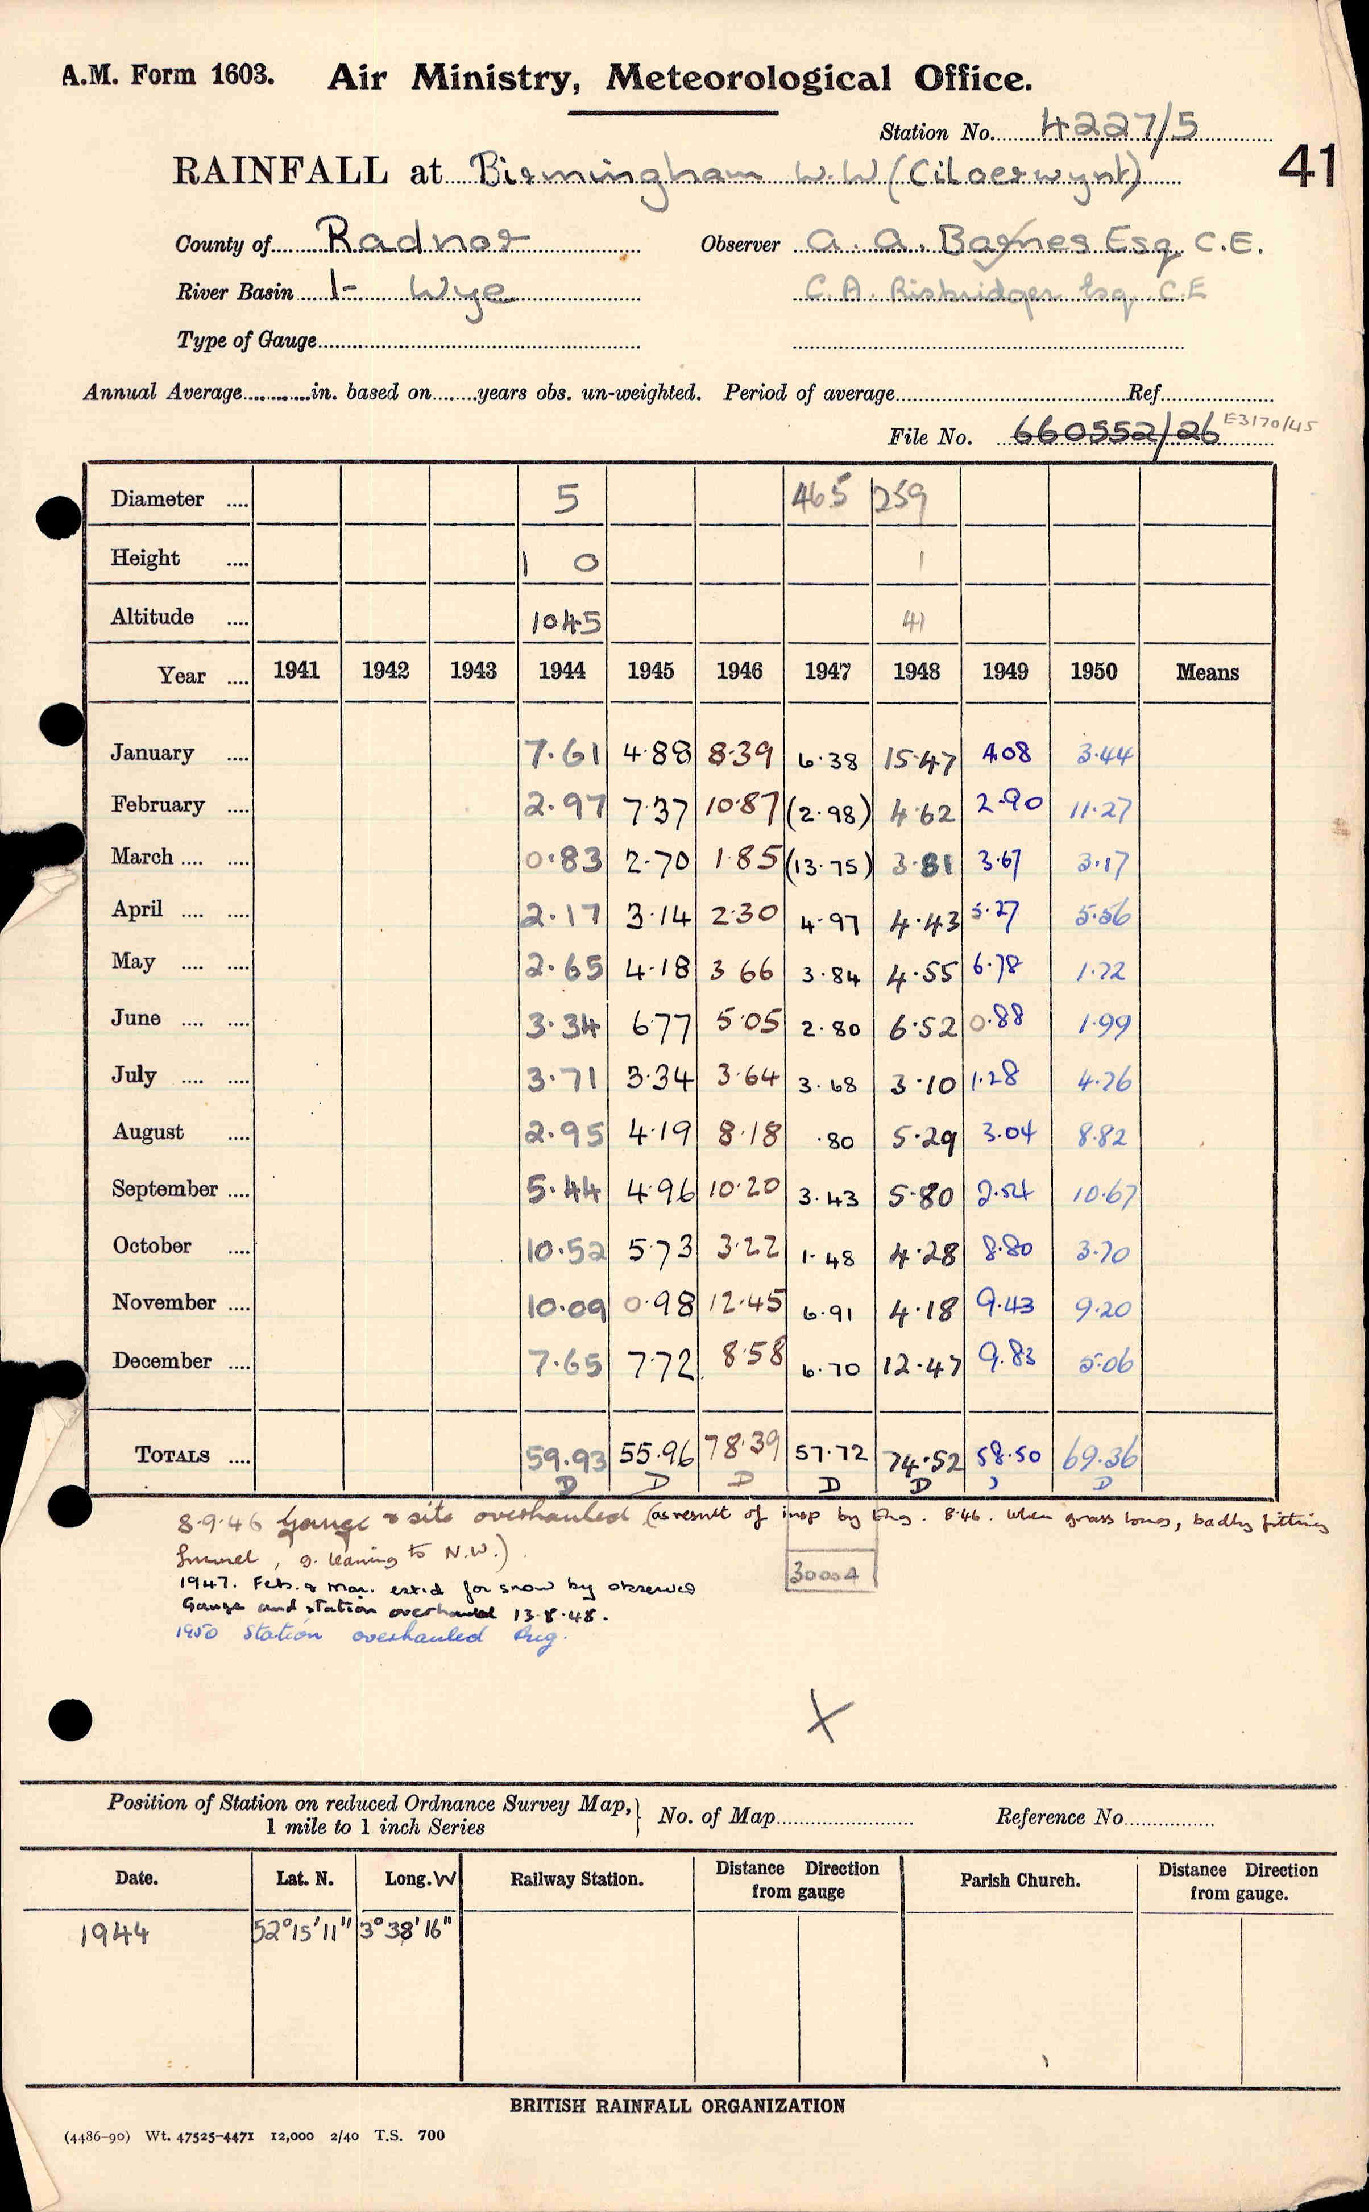 A.M. Form 1603. Air Ministry, Meteorological Office.
Station No. 4227/5
41
RAINFALL at Birmingham W.W (Ciloerwynt)
County of Radnor Observer A. A. Barnes Esq. C.E.
River Basin 1- Wye C. A. Risbridger Esq. C.E
Type of Gauge
Annual Average in. based on years obs. un-weighted. Period of average Ref
File No. 660552/26 E3170/45
Diameter 5 465 259
Height 1 0 1
Altitude 1045 41
Year 1941 1942 1943 1944 1945 1946 1947 1948 1949 1950 Means
January 7.61 4.88 8.39 6.38 15.47 4.08 3.44
February 2.97 7.37 10.87 (2.98) 4.62 2.90 11.27
March 0.83 2.70 1.85 (13.75) 3.81 3.67 3.17
April 2.17 3.14 2.30 4.97 4.43 5.27 5.56
May 2.65 4.18 3 66 3.84 4.55 6.78 1.72
June 3.34 6.77 5.05 2.80 6.52 0.88 1.99
July 3.71 3.34 3.64 3.68 3.10 1.28 4.76
August 2.95 4.19 8.18 .80 5.29 3.04 8.82
September 5.44 4.96 10.20 3.43 5.80 2.54 10.67
October 10.52 5.73 3.22 1.48 4.28 8.80 3.70
November 10.09 0.98 12.45 6.91 4.18 9.43 9.20
December 7.65 7.72 8.58 6.70 12.47 9.83 5.06
TOTALS 59.93 55.96 78.39 57.72 74.52 58.50 69.36
D D D D D D D
8.9.46 Gauge & site overhauled (as result of insp by Eng. 8.46. when grass long, badly fitting
funnel, g. leaning to N.W.)
30004
1947. Feb. & Mar. est.d for snow by observer
Gauge and station overhauled 13.8.48.
1950 Station overhauled Aug.
X
Position of Station on reduced Ordnance Survey Map, 1 mile to 1 inch Series } No. of Map Reference No
Date. Lat. N. Long. W Railway Station. Distance Direction from gauge Parish Church. Distance Direction from gauge.
1944 52°15'11" 3°38'16"
BRITISH RAINFALL ORGANIZATION
(4486-90) Wt. 47525-4471 12,000 2/40 T.S. 700